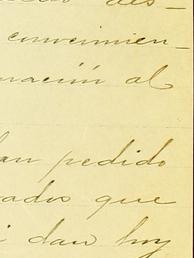 des-
convenien-
mación al
han pedido
rados que
i dan hoy